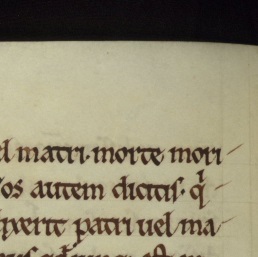 el matri. morte mori
os autem dicitis. q
ixerit patri uel ma